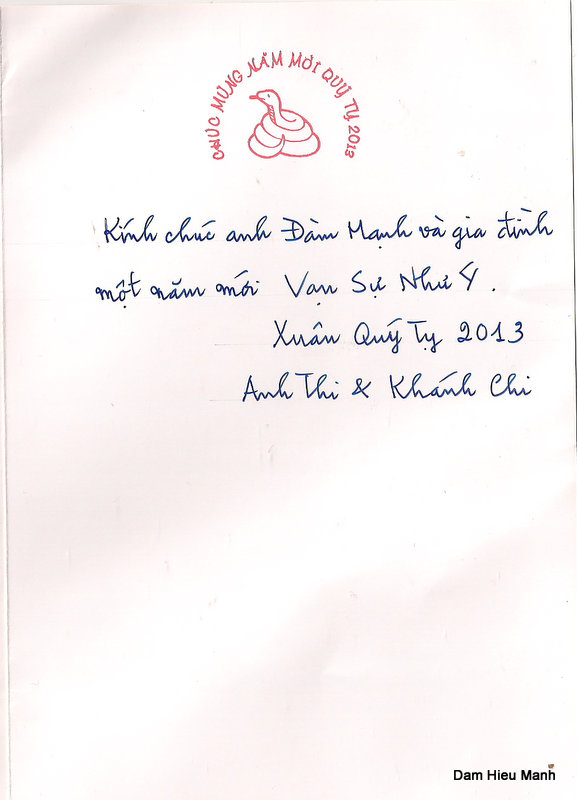 CHÚC MỪNG NĂM MỚI QUÝ TỴ 2013
Kính chúc anh Đàm Mạnh và gia đình
một năm mới Vạn Sự Như Ý.
Xuân Quý Tỵ 2013
Anh Thi & Khánh Chi
Dam Hieu Manh